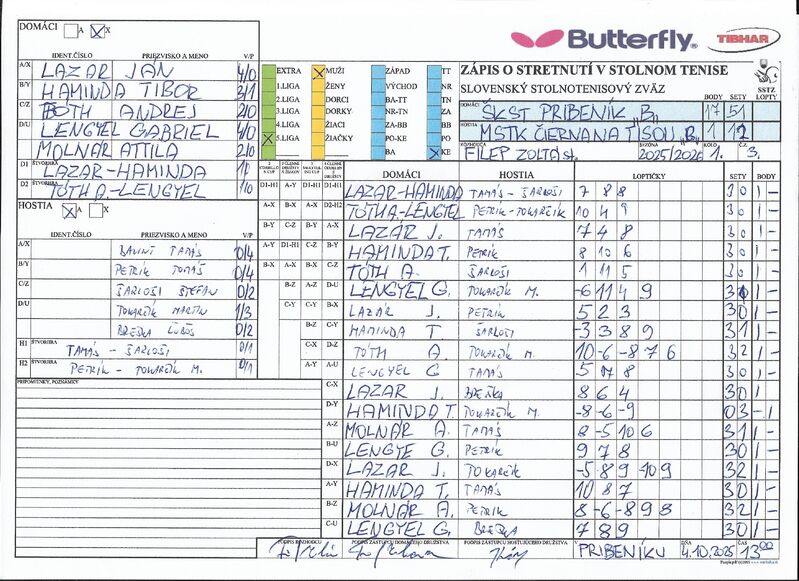 DOMÁCI A X
IDENT.ČÍSLO PRIEZVISKO A MENO V/P
A/X LAZAR JÁN 4/0
B/Y HAMINDA TIBOR 3/1
C/Z TÓTH ANDREJ 2/0
D/U LENGYEL GABRIEL 4/0
MOLNÁR ATTILA 2/0
D1 ŠTVORHRA LAZAR-HAMINDA
D2 TÓTH A.-LENGYEL 1/0
HOSTIA A X
IDENT.ČÍSLO PRIEZVISKO A MENO V/P
A/X TAMÁS 0/4
B/Y PETRIK TOMÁŠ 0/4
C/Z ŠARLOŠI ŠTEFAN 0/2
D/U TOKARČÍK MARTIN 1/3
BREŠKA ĽUBOŠ 0/2
H1 ŠTVORHRA TAMÁS - ŠARLOŠI 0/1
H2 PETRIK - TOKARČÍK M. 0/1
PRIPOMIENKY, POZNÁMKY
Butterfly TIBHAR
EXTRA MUŽI ZÁPAD TT
1.LIGA ŽENY VÝCHOD NR
2.LIGA DORCI BA-TT TN
3.LIGA DORKY NR-TN ZA
4.LIGA ŽIACI ZA-BB BB
5.LIGA ŽIAČKY PO-KE PO
BA KE
ZÁPIS O STRETNUTÍ V STOLNOM TENISE
SLOVENSKÝ STOLNOTENISOVÝ ZVÄZ BODY SETY LOPTY
SSTZ
DOMÁCI ŠKST PRIBENÍK „B“ 17 51
HOSTIA MSTK ČIERNA N TISOU „B“ 1 12
ROZHODCA FILEP ZOLTÁN st. SEZÓNA 2025/2026 KOLO 1. Č. 3.
DOMÁCI HOSTIA LOPTIČKY SETY BODY
D1-H1 A-Y D1-H1 D1-H1 LAZAR-HAMINDA TAMÁS - ŠARLOŠI 7 8 8 3 0 1 -
A-X B-X A-X D2-H2 TÓTH A-LENGYEL PETRIK-TOKARČÍK 10 4 9 3 0 1 -
B-Y C-Z B-Y A-X LAZÁR J. TAMÁS 7 4 8 3 0 1 -
A-Y D1-H1 C-Z B-Y HAMINDA T. PETRIK 8 10 6 3 0 1 -
B-X A-X B-X C-Z TÓTH A. ŠARLOŠI 1 11 5 3 0 1 -
B-Z A-Z D-U LENGYEL G. TOKARČÍK M. -6 11 4 9 3 1 1 -
C-Y C-Y B-X LAZAR J. PETRIK 5 2 3 3 0 1 -
B-Z C-Y HAMINDA T ŠARLOŠI -3 3 8 9 3 1 1 -
C-X D-Z TÓTH A. TOKARČÍK M. 10 -6 -8 7 6 3 2 1 -
A-Y A-U LENGYEL G TAMÁS 5 7 8 3 0 1 -
C-X LAZÁR J. BREŠKA 8 6 4 3 0 1 -
D-Y HAMINDA T. TOKARČÍK M. -8 -6 -9 0 3 - 1
A-Z MOLNÁR A. TAMÁS 8 -5 10 6 3 1 1 -
B-U LENGYE G. PETRIK 9 7 8 3 0 1 -
D-X LAZAR J. TOKARČÍK -5 8 9 -10 9 3 2 1 -
A-Y HAMINDA T. TAMÁS 10 8 7 3 0 1 -
B-Z MOLNÁR A. PETRIK 8 -6 -8 9 8 3 2 1 -
C-U LENGYEL G. BREŠKA 7 8 9 3 0 1 -
PODPIS ROZHODCU PODPIS ZÁSTUPCU DOMÁCEHO DRUŽSTVA PODPIS ZÁSTUPCU HOSŤUJÚCEHO DRUŽSTVA V PRIBENÍKU DŇA 4.10.2025 ČAS 13 00